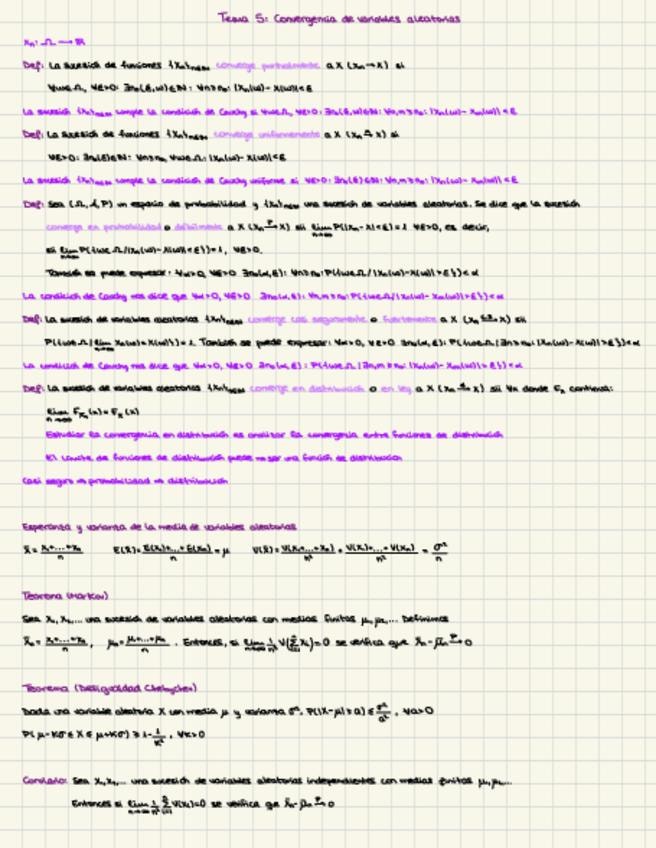 Tema 5: Convergencia de variables aleatorias
Xn: Ω → ℝ
Def: La sucesión de funciones {Xn}n∈ℕ converge puntualmente a X (Xn→X) si
∀ω∈Ω, ∀ε>0: ∃n₀(ε,ω)∈ℕ: ∀n≥n₀: |Xn(ω)-X(ω)|<ε
La sucesión {Xn}n∈ℕ cumple la condición de Cauchy si ∀ω∈Ω, ∀ε>0: ∃n₀(ε,ω)∈ℕ: ∀n,m≥n₀: |Xn(ω)-Xm(ω)|<ε
Def: La sucesión de funciones {Xn}n∈ℕ converge uniformemente a X (Xn→X) si
∀ε>0: ∃n₀(ε)∈ℕ: ∀n≥n₀, ∀ω∈Ω: |Xn(ω)-X(ω)|<ε
La sucesión {Xn}n∈ℕ cumple la condición de Cauchy uniforme si ∀ε>0: ∃n₀(ε)∈ℕ: ∀n,m≥n₀: |Xn(ω)-Xm(ω)|<ε
Def: Sea (Ω, A, P) un espacio de probabilidad y {Xn}n∈ℕ una sucesión de variables aleatorias. Se dice que la sucesión
converge en probabilidad o débilmente a X (Xn →P X) sii lim n→∞ P(|Xn-X|<ε)=1 ∀ε>0, es decir,
sii lim n→∞ P({ω∈Ω/|Xn(ω)-X(ω)|<ε})=1, ∀ε>0.
También se puede expresar: ∀α>0, ∀ε>0 ∃n₀(α,ε): ∀n≥n₀: P({ω∈Ω/|Xn(ω)-X(ω)|>ε})<α
La condición de Cauchy nos dice que ∀α>0, ∀ε>0 ∃n₀(α,ε): ∀n,m≥n₀: P({ω∈Ω/|Xn(ω)-Xm(ω)|>ε})<α
Def: La sucesión de variables aleatorias {Xn}n∈ℕ converge casi seguramente o fuertemente a X (Xn → X) sii
P({ω∈Ω/lim n→∞ Xn(ω)=X(ω)})=1. También se puede expresar: ∀α>0, ∀ε>0 ∃n₀(α,ε): P({ω∈Ω/∃n≥n₀: |Xn(ω)-X(ω)|>ε})<α
La condición de Cauchy nos dice que ∀α>0, ∀ε>0 ∃n₀(α,ε): P({ω∈Ω/∃n,m≥n₀: |Xn(ω)-Xm(ω)|>ε})<α
Def: La sucesión de variables aleatorias {Xn}n∈ℕ converge en distribución o en ley a X (Xn →d X) sii ∀x donde Fx continua:
lim n→∞ Fxn(x)=Fx(x)
Estudiar la convergencia en distribución es analizar la convergencia entre funciones de distribución
El límite de funciones de distribución puede no ser una función de distribución
Casi seguro ⇒ probabilidad ⇒ distribución
Esperanza y varianza de la media de variables aleatorias
x̄ = (x₁+...+xn)/n E(x̄) = (E(x₁)+...+E(xn))/n = μ V(x̄) = V(x₁+...+xn)/n² = (V(x₁)+...+V(xn))/n² = σ²/n
Teorema (Markov)
Sea X₁, X₂,... una sucesión de variables aleatorias con medias finitas μ₁, μ₂,... Definimos
X̄n = (x₁+...+xn)/n, μ̄n = (μ₁+...+μn)/n. Entonces, si lim n→∞ 1/n² V(∑ Xi)=0 se verifica que X̄n - μ̄n →P 0
Teorema (Desigualdad Chebychev)
Dada una variable aleatoria X con media μ y varianza σ², P(|X-μ|≥a) ≤ σ²/a², ∀a>0
P(μ-Kσ ≤ X ≤ μ+Kσ) ≥ 1-1/K², ∀K>0
Corolario: Sea X₁, X₂,... una sucesión de variables aleatorias independientes con medias finitas μ₁, μ₂,...
Entonces si lim n→∞ 1/n² ∑ V(Xi)=0 se verifica que X̄n - μ̄n →P 0